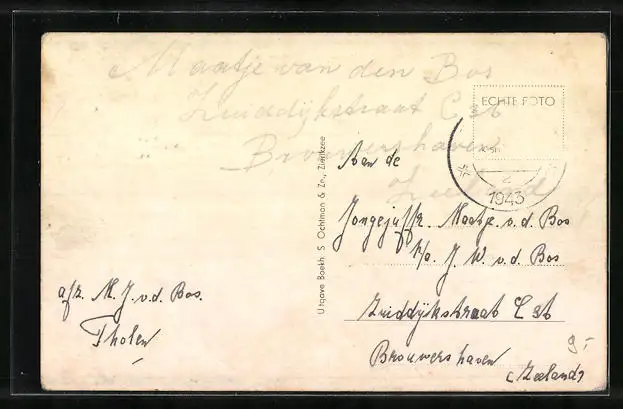 Maatje van den Bos
Zuiddijkstraat C 36
Brouwershaven
Zeeland
ECHTE FOTO
1943
Uitgave Boekh. S. Ochtman & Zn., Zierikzee
Aan de
Jongejuffr. Maatje v. d. Bos
p/a. J. W. v. d. Bos
Zuiddijkstraat C 36
Brouwershaven
(Zeeland)
afz. M. J. v. d. Bos.
Tholen
9,-